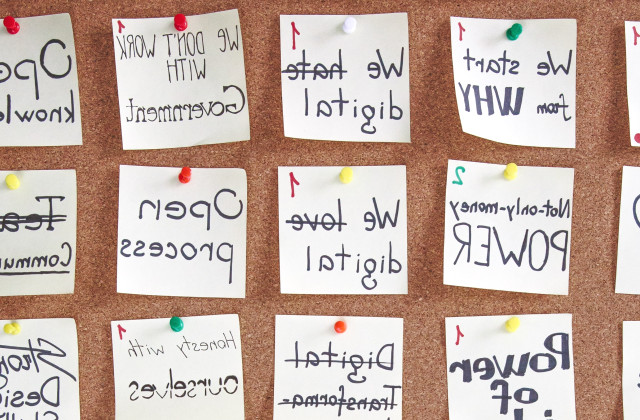 Ope
knowle
1
WE DON'T WORK
WITH
Government
1
We hate
digital
1
We start
from WHY
Tea
Commun
Open
process
1
We love
digital
2
Not-only-money
POWER
Strong
Desig
1
Honesty with
ourselves
Digital
Transforma-
1
Power
of